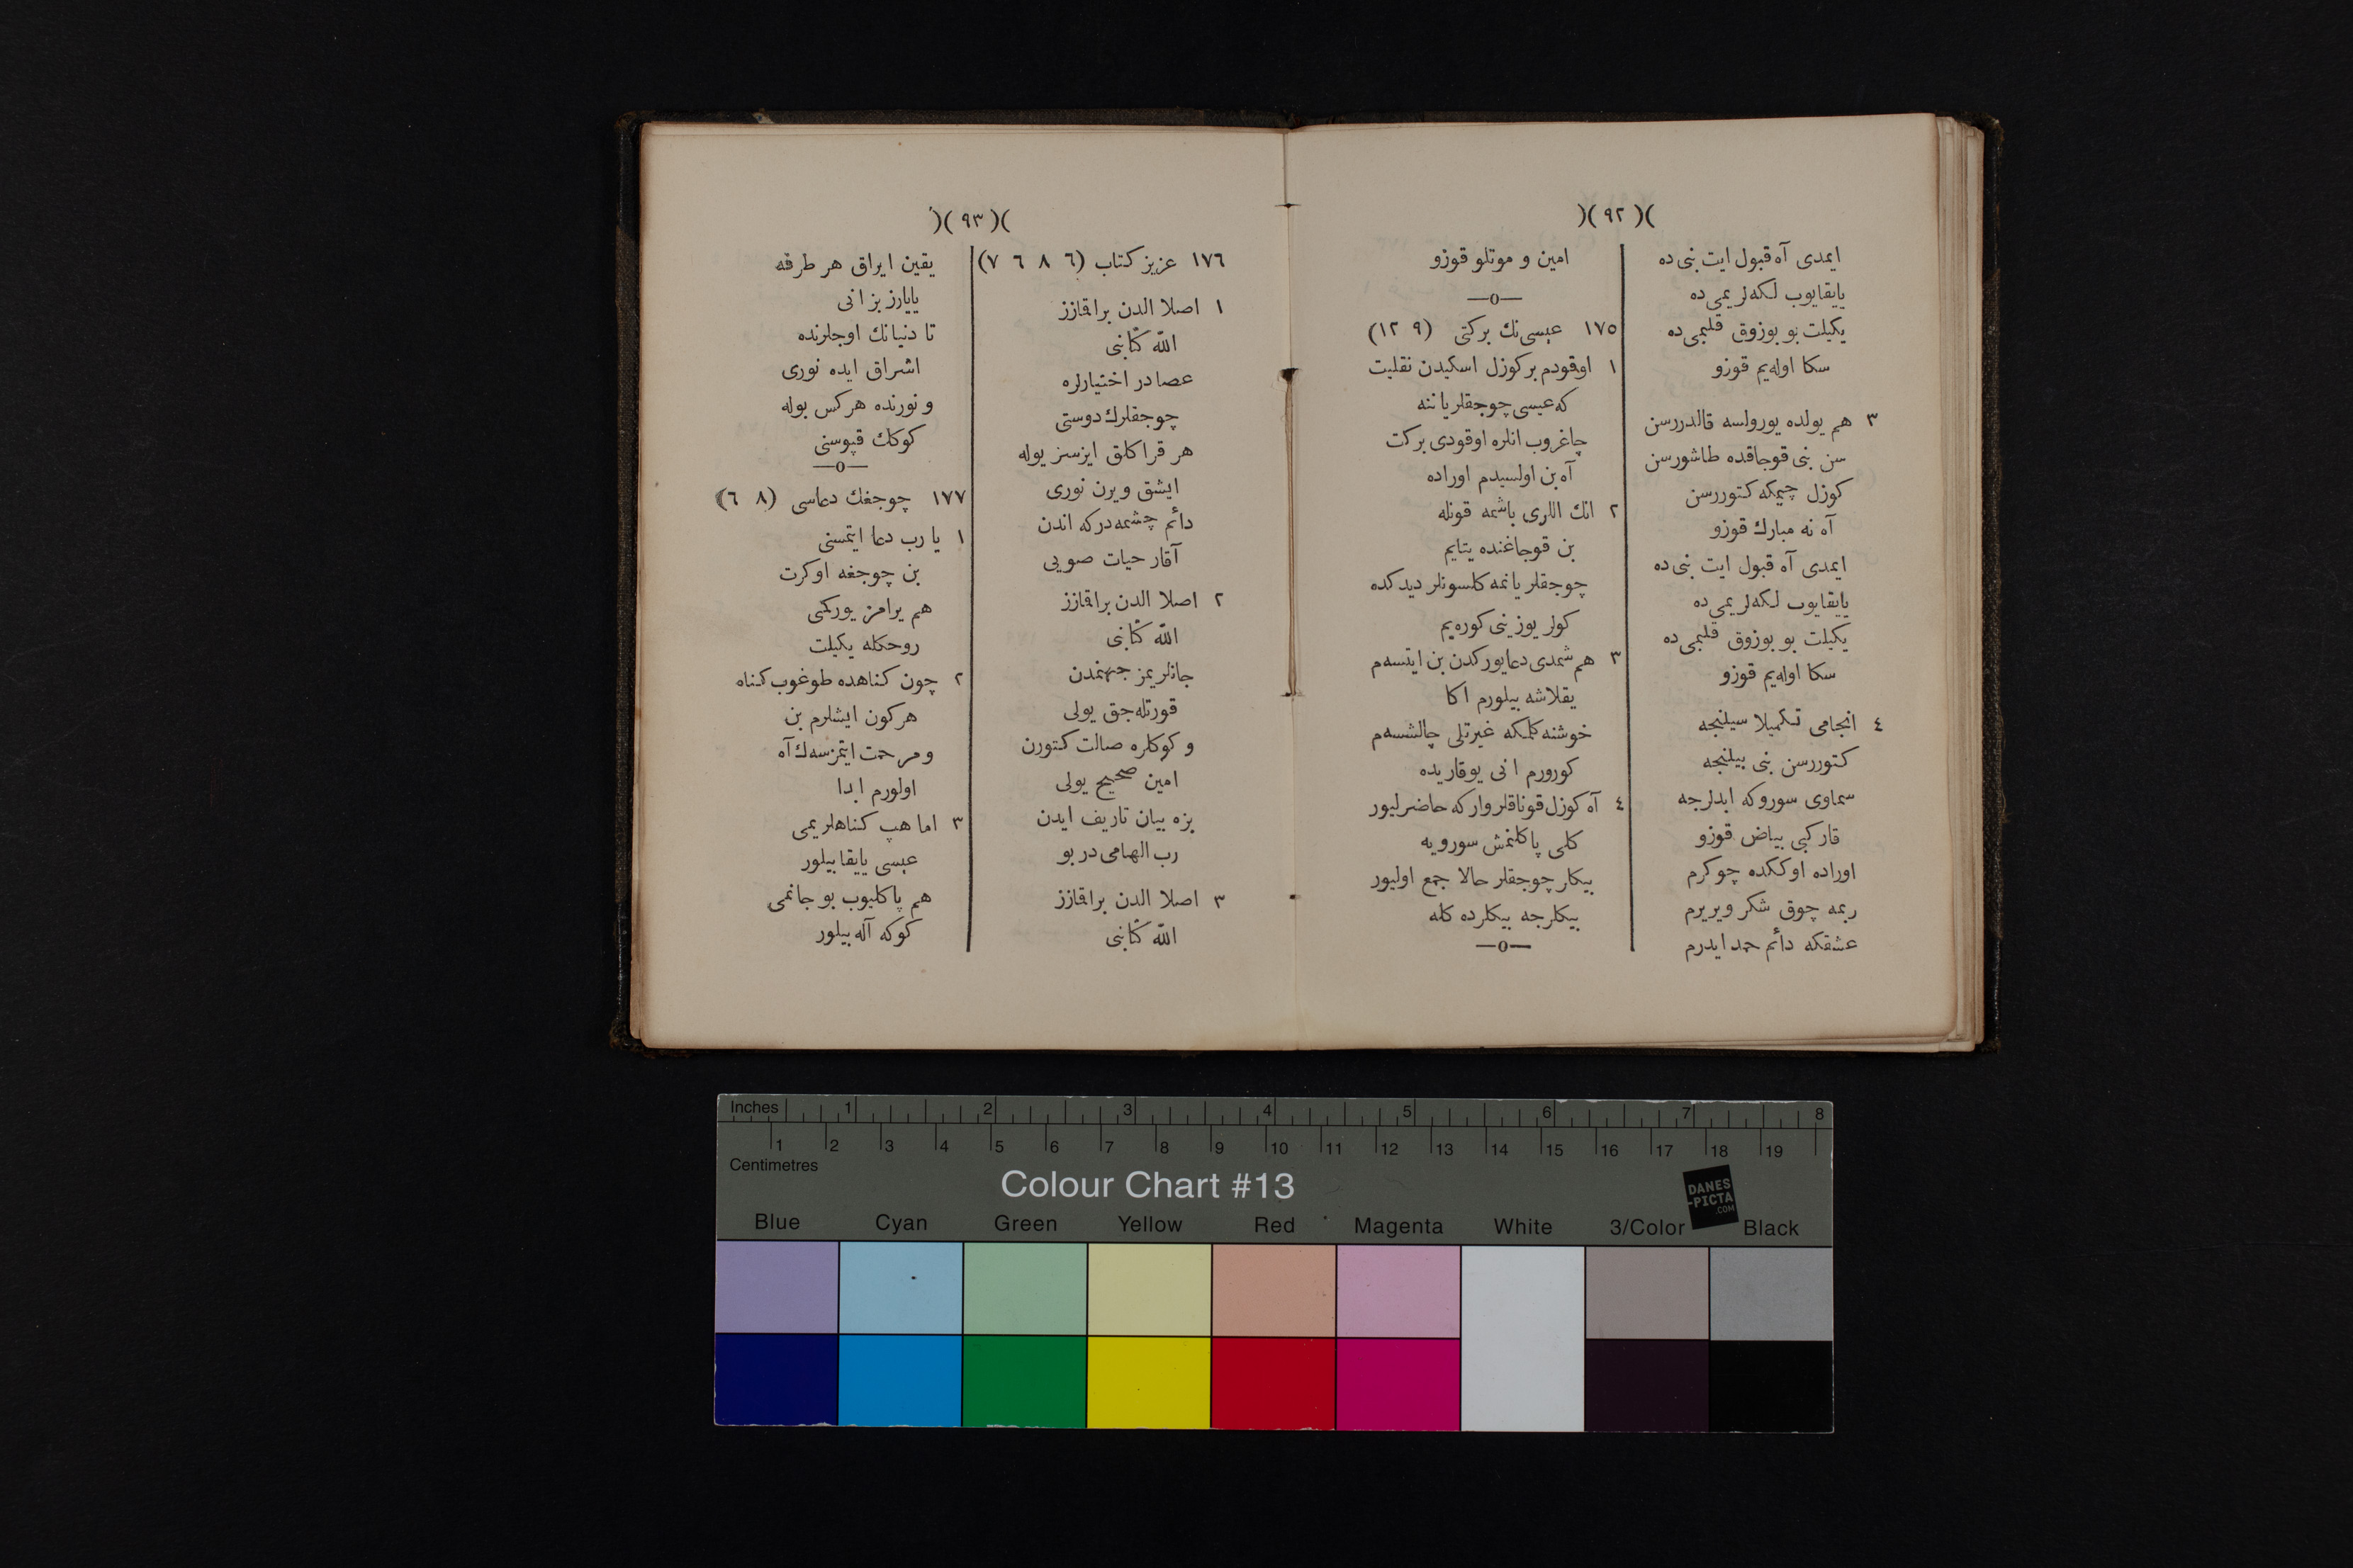 )( ٩٢ )(
ايمدى آه قبول ايت بنى ده
يايقايوب لكه‌لريمى ده
يكيلت بو بوزوق قلبمى ده
سكا اوله‌يم قوزو
٣ هم يولده يورولسه قالدررسن
سن بنى قوجاقده طاشورسن
كوزل چيمكه كتوررسن
آه نه مبارك قوزو
ايمدى آه قبول ايت بنى ده
يايقايوب لكه‌لريمى ده
يكيلت بو بوزوق قلبمى ده
سكا اوله‌يم قوزو
٤ انجامى تكميلا سيلنجه
كتوررسن بنى بيلنجه
سماوى سوروكه ابدلرجه
قار كبى بياض قوزو
اوراده اوككده چوكرم
ربمه چوق شكر ويريرم
عشقكه دائم حمد ايدرم
امين و موتلو قوزو
—o—
١٧٥ عيسى‌نك بركتى (٩ ١٢)
١ اوقودم بر كوزل اسكيدن نقليت
كه عيسى چوجقلر ياننه
چاغروب انلره اوقودى بركت
آه بن اولسيدم اوراده
٢ انك اللرى باشمه قونله
بن قوجاغنده يتايم
چوجقلر يانمه كلسونلر ديدكده
كولر يوزينى كوره‌يم
٣ هم شمدى دعا يوركدن بن ايتسه‌م
يقلاشه بيلورم اكا
خوشنه كلمكه غيرتلى چالشسه‌م
كورورم انى يوقاريده
٤ آه كوزل قوناقلر وار كه حاضرليور
كلى پاكلنمش سورويه
بيكلر چوجقلر حالا جمع اوليور
بيكلرجه بيكلرده كله
—o—
)( ٩٣ )(
١٧٦ عزيز كتاب (٦ ٨ ٦ ٧)
١ اصلا الدن براقازز
الله كتابنى
عصادر اختيارلره
چوجقلرك دوستى
هر قراكلق ايزسز يوله
ايشق ويرن نورى
دائم چشمه‌در كه اندن
آقار حيات صويى
٢ اصلا الدن براقازز
الله كتابنى
جانلريمز جهنمدن
قورتله‌جق يولى
و كوكلره صالت كتورن
امين صحيح يولى
بزه بيان تاريف ايدن
رب الهامى در بو
٣ اصلا الدن براقازز
الله كتابنى
يقين ايراق هر طرفه
يايارز بز انى
تا دنيانك اوجلرنده
اشراق ايده نورى
و نورنده هركس بوله
كوكك قپوسنى
—o—
١٧٧ چوجغك دعاسى (٨ ٦)
١ يا رب دعا ايتمسنى
بن چوجغه اوكرت
هم يرامز يوركمى
روحكله يكيلت
٢ چون كناهده طوغوب كناه
هركون ايشلرم بن
و مرحمت ايتمزسه‌ك آه
اولورم ابدا
٣ اما هپ كناهلريمى
عيسى يايقا بيلور
هم پاكليوب بو جانمى
كوكه آله بيلور
Inches 1 2 3 4 5 6 7 8
1 2 3 4 5 6 7 8 9 10 11 12 13 14 15 16 17 18 19
Centimetres
Colour Chart #13
DANES
-PICTA
.COM
Blue Cyan Green Yellow Red Magenta White 3/Color Black